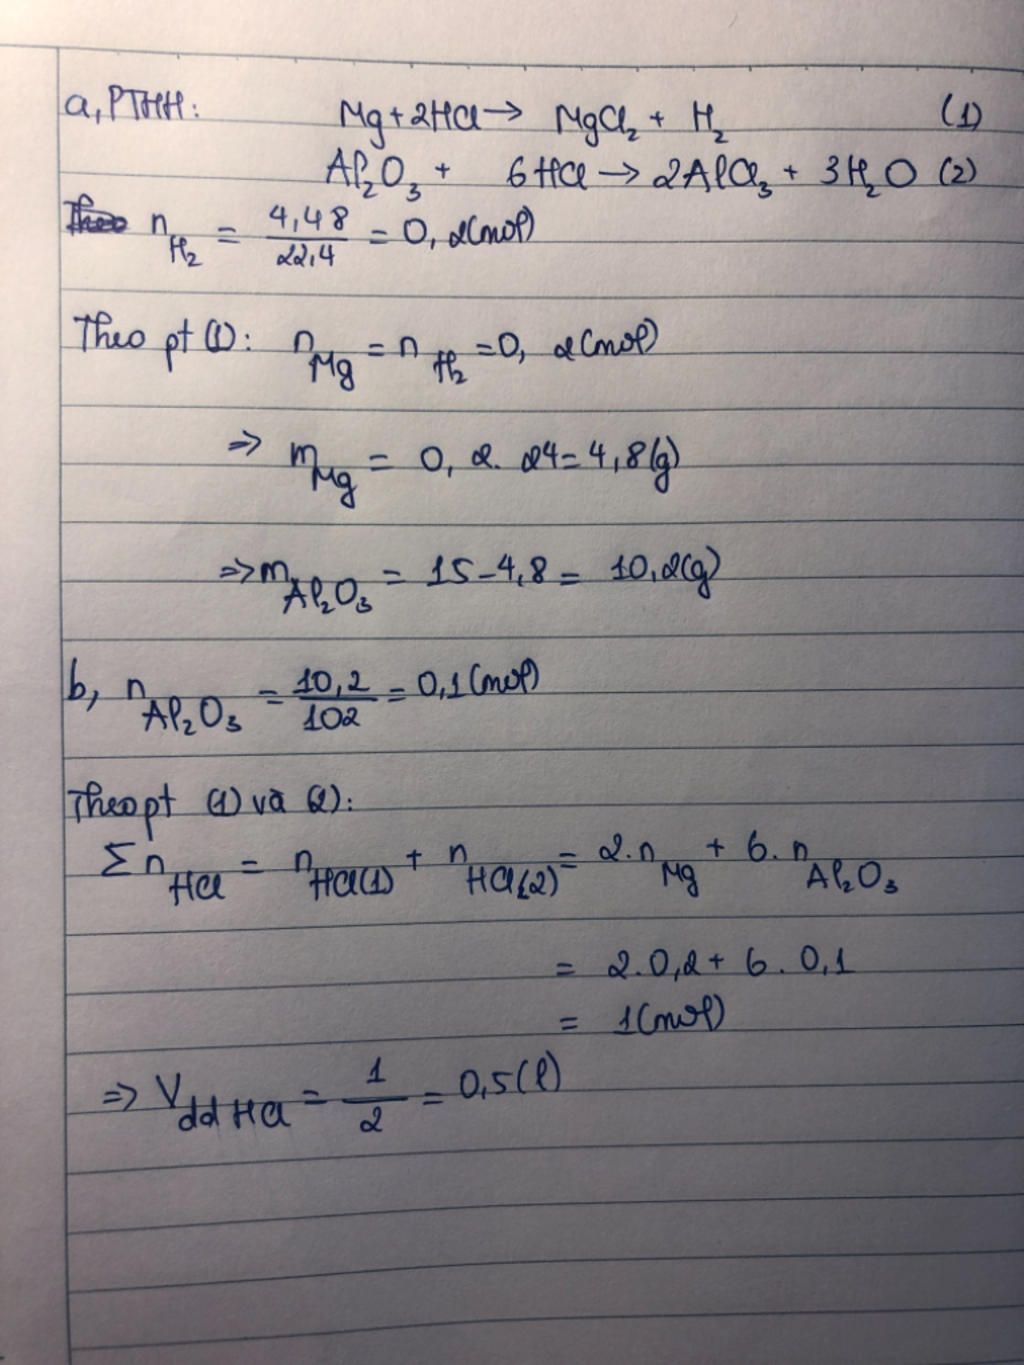 a, PTHH: Mg + 2HCl → MgCl₂ + H₂ (1)
Al₂O₃ + 6HCl → 2AlCl₃ + 3H₂O (2)
n_H₂ = 4,48/22,4 = 0,2(mol)
Theo pt (1): n_Mg = n_H₂ = 0,2(mol)
⇒ m_Mg = 0,2. 24 = 4,8(g)
⇒ m_Al₂O₃ = 15 - 4,8 = 10,2(g)
b, n_Al₂O₃ = 10,2/102 = 0,1(mol)
Theo pt (1) và (2):
Σn_HCl = n_HCl(1) + n_HCl(2) = 2.n_Mg + 6.n_Al₂O₃
= 2.0,2 + 6.0,1
= 1(mol)
⇒ V_dd HCl = 1/2 = 0,5(l)